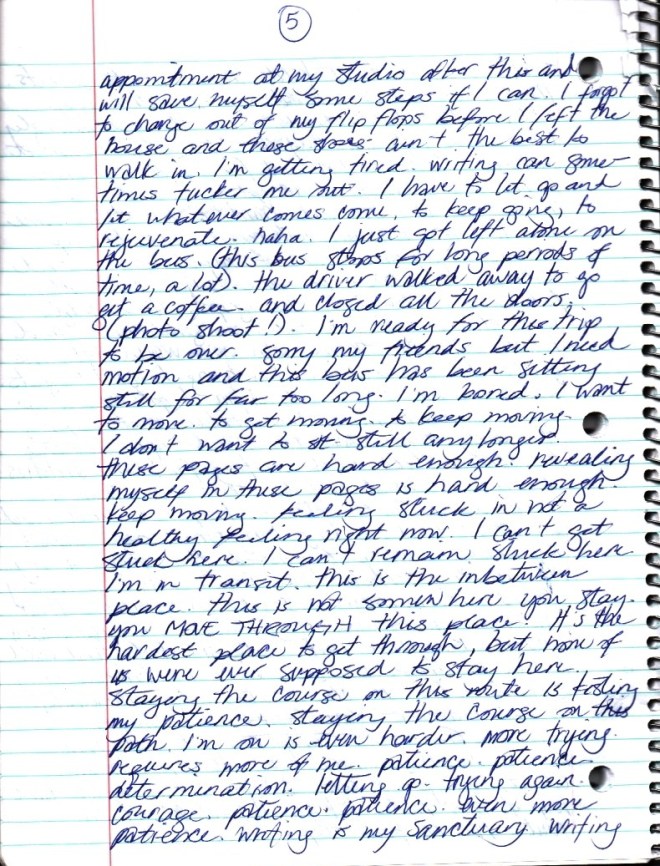 5
appointment at my studio after this and
will save myself some steps if I can. I forgot
to change out of my flip flops before I left the
house and these shoes ain't the best to
walk in. I'm getting tired. writing can some-
times tucker me out. I have to let go and
let whatever comes come, to keep going, to
rejuvenate. haha. I just got left alone on
the bus. (this bus stops for long periods of
time, a lot). the driver walked away to go
get a coffee. and closed all the doors.
(photo shoot!). I'm ready for this trip
to be over. sorry my friends but I need
motion and this bus has been sitting
still for far too long. I'm bored. I want
to move. to get moving. to keep moving.
I don't want to sit still any longer.
these pages are hard enough. revealing
myself in these pages is hard enough.
keep moving. feeling stuck in not a
healthy feeling right now. I can't get
stuck here. I can't remain stuck here
I'm in transit. this is the inbetween
place. this is not somewhere you stay.
you MOVE THROUGH this place. It's the
hardest place to get through, but none of
us were ever supposed to stay here.
Staying the course on this route is testing
my patience. staying the course on this
path. I'm on is even harder. more trying.
requires more of me. patience. patience.
determination. letting go. trying again.
courage. patience. patience. even more
patience. writing is my sanctuary. writing